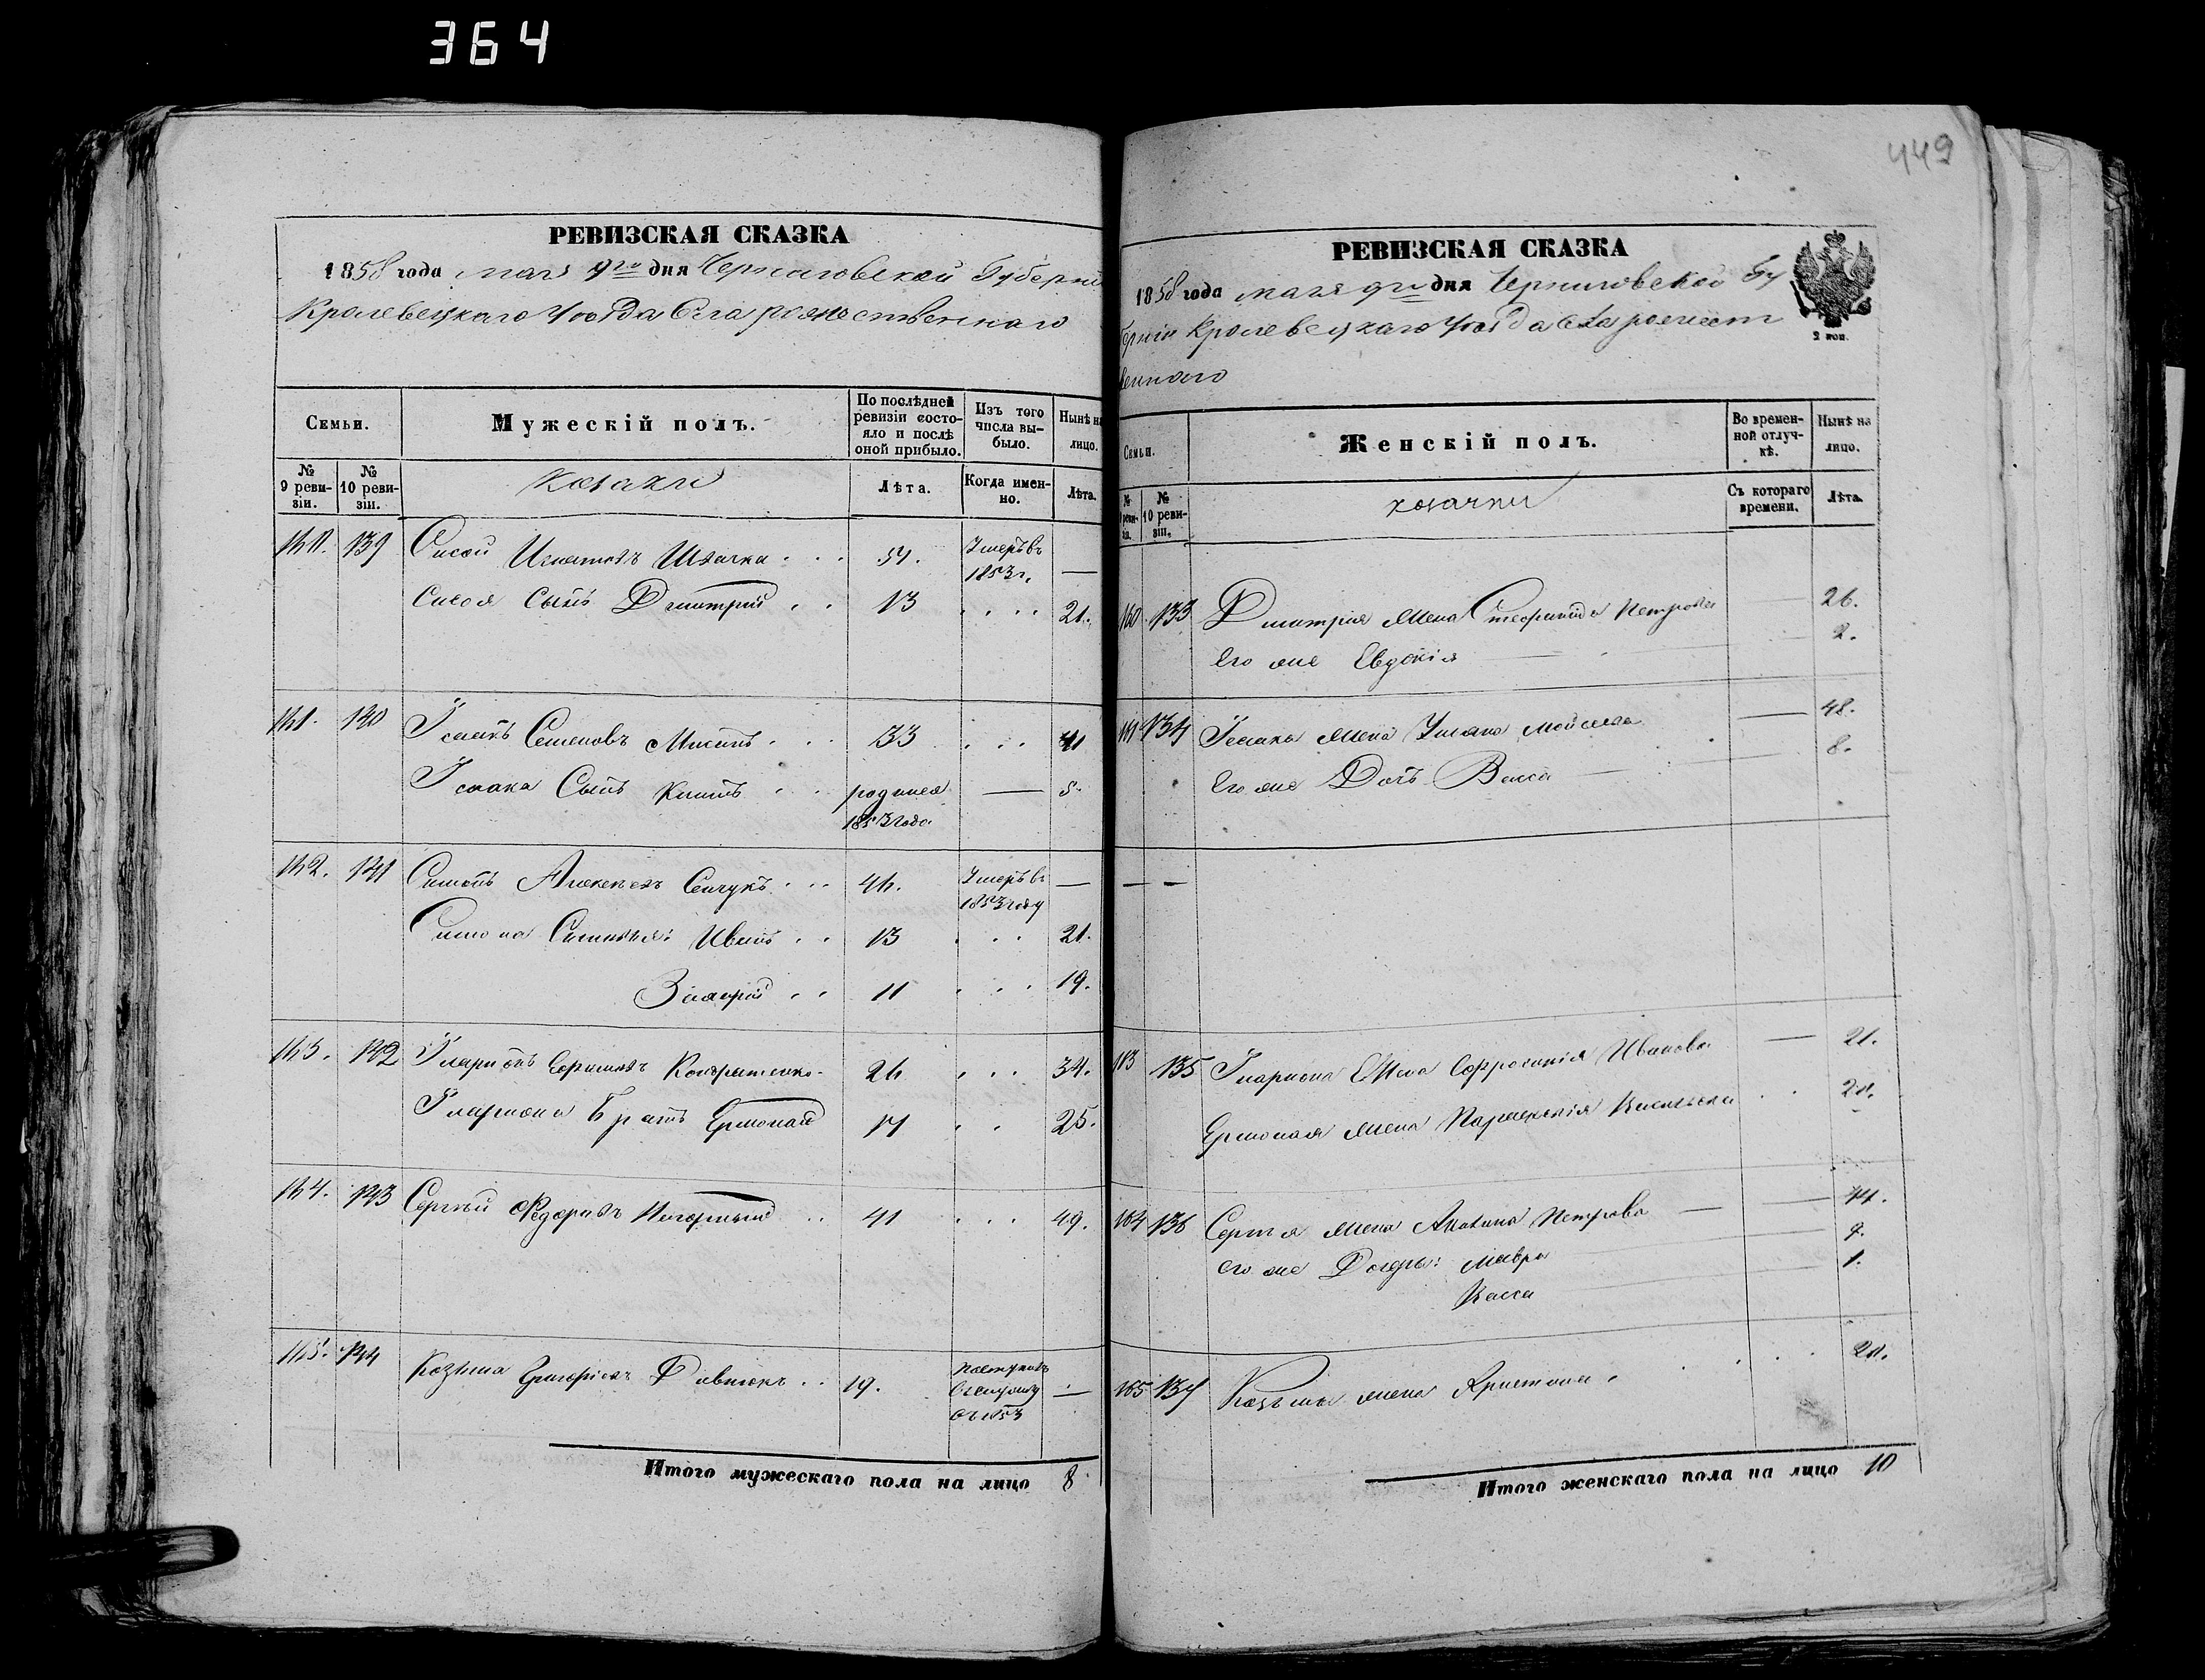 364
449
РЕВИЗСКАЯ СКАЗКА
1858 года мая 9го дня Черниговской Губерніи
Кролевецкаго Уѣзда Села рожественнаго
Семьи.
Мужескій полъ.
По послѣдней ревизіи состояло и послѣ оной прибыло.
Изъ того числа выбыло.
Нынѣ на лицо.
№ 9 ревизіи.
№ 10 ревизіи.
Козаки
Лѣта.
Когда именно.
Лѣта.
139 Сисой Игнатовъ Швачка 54. Умеръ въ
1853 г. —
Сисоя Сынъ Дмитрій 13 21.
161. 140 Ісаакъ Семеновъ 33 41
Ісаака Сынъ родился — 5.
1853 года
162. 141 Симонъ Алексѣевъ Сенчукъ 46. Умеръ въ —
1853 году
Симона Сыновья: Иванъ 13 21.
11 19.
163. 142 Іларіонъ Ефимовъ Кондратенко 26 34.
Іларіона Братъ Ермолай 17 25.
164. 143 Сергѣй Федоровъ 41 49.
165. 144 Козьма Григорьевъ 19. Поступилъ
—
съ 1853
Итого мужескаго пола на лицо 8
РЕВИЗСКАЯ СКАЗКА
1858 года мая 9го дня Черниговской Гу
берніи Кролевецкаго Уѣзда Села рожест
веннаго
2 коп.
Семьи.
Женскій полъ.
Во временной отлучкѣ.
Нынѣ на лицо.
№ 9 ревизіи.
№ 10 ревизіи.
козачки
Съ котораго времени.
Лѣта.
160 133 Дмитрія Жена Стефанида Петрова — 26.
Его же Евдокія — 2.
161 134 Ісаака Жена Уліана Мойсеева — 48.
Его же Дочь Васса — 8.
— —
163 135 Іларіона Жена Ефросинія Иванова — 21.
Ермолая Жена Параскевія Васильева
164 136 Сергѣя Жена Петрова — 44.
его же Дочери: Мавра 9.
Васса 1.
165 137 Козьмы жена Христина
Итого женскаго пола на лицо 10